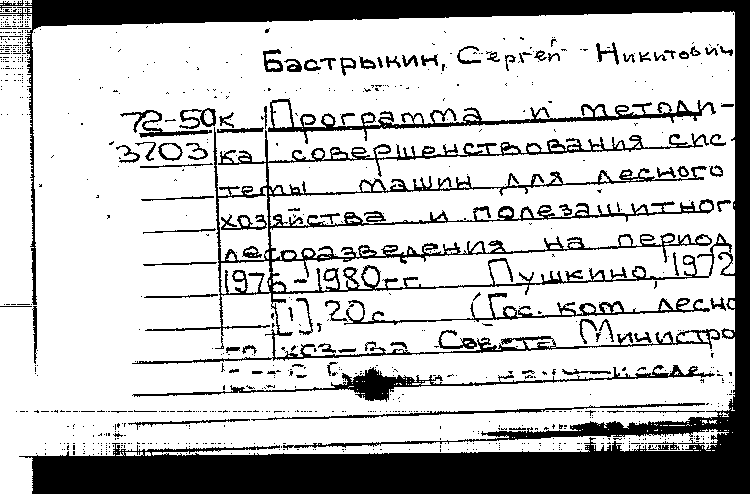 Бастрыкин, Сергей Никитович
72-50к Программа и методи-
3703 ка совершенствования сис-
темы машин для лесного
хозяйства и полезащитного
лесоразведения на период
1976-1980гг. Пушкино, 1972
[1], 20с. (Гос. ком. лесно
го хоз-ва Совета Министро
науч-иссле